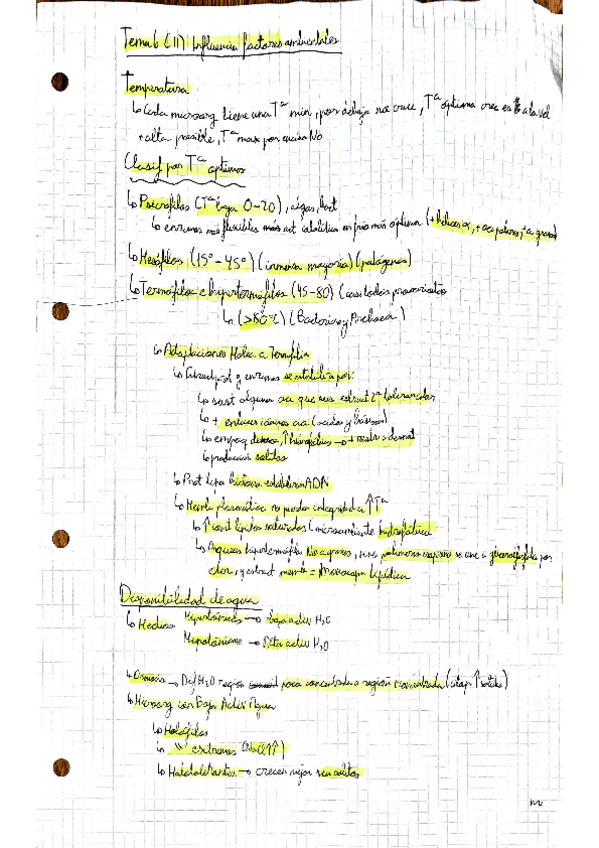 Tema 6 (II) Influencia factores ambientales
Temperatura
↳ Cada microorg tiene una Tª min, por debajo no crece, Tª optima crece a la vel
+ alta posible, Tª max por encima No
Clasif por Tª optimos
↳ Psicrofilos (Tª baja 0-20), algas, bact
↳ enzimas más flexibles mas act catalitica en frio más optima (+ helices α, + aa polares,
↳ Mesófilos (15º-45º) (inmensa mayoría) (patógenos)
↳ Termófilos e hipertermófilos (45-80) (casi todos procariotas
↳ (>80ºC) (Bacterias y Archaea)
↳ Adaptaciones Molec a Termofilia
↳ prot y enzimas se estabiliza por:
↳ sust algunos aa que mas estruct 2ª
↳ + enlaces iónicos aa (acidos y básicos)
↳ empaq denso, ↑ hidrofobico → + resist desnat
↳ producción solutos
↳ Prot tipo histona estabilizan ADN
↳ Memb plasmática no pierda integridad a ↑Tª
↳ ↑ cont lípidos saturados (microambiente hidrofóbico
↳ Arqueas hipertermófilas No a grasos, se une a por
eter, y estruct memb = Monocapa lipídica
Disponibilidad de agua
↳ Medios Hipertónicos → baja activ H₂O
Hipotónicos → alta activ H₂O
↳ Osmosis → Dif H₂O region poco concentrada a región concentrada ( ↑ soluto)
↳ Microorg con Baja Activ Agua
↳ Halófilos
↳ " extremos (NaCl ↑↑)
↳ Halotolerantes → crecen mejor sin solutos